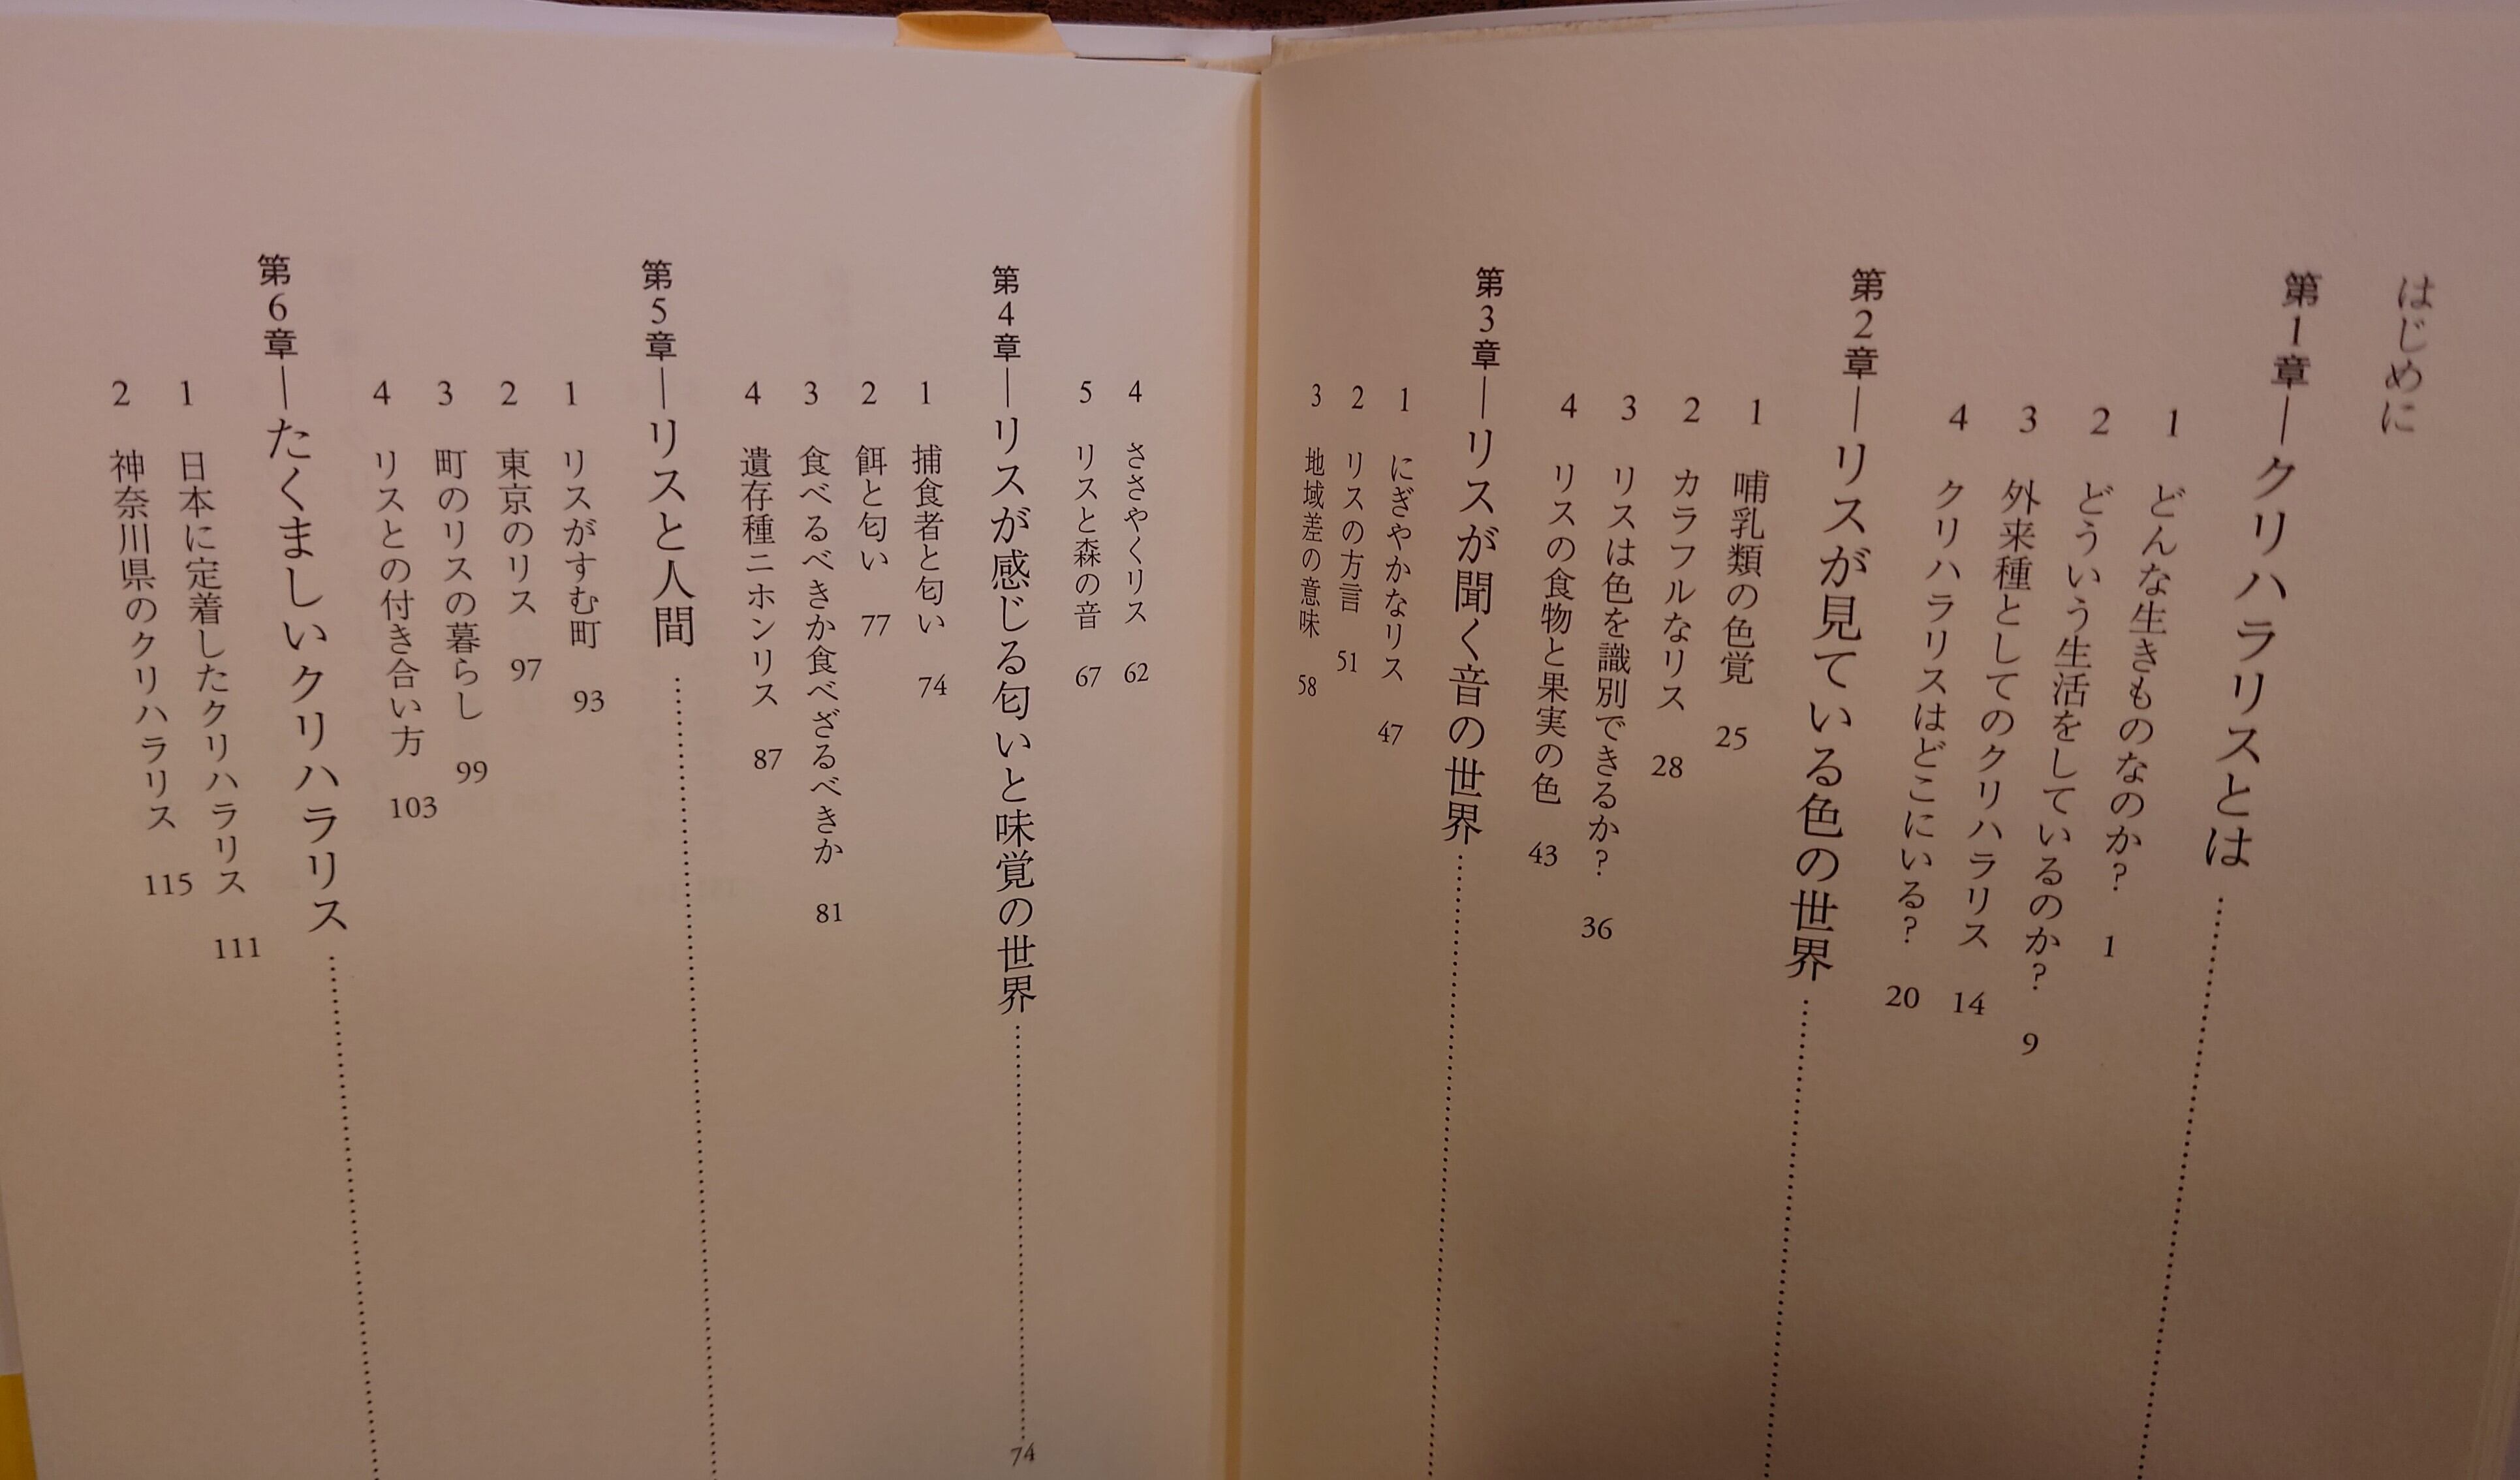 はじめに
第1章―クリハラリスとは……………
1 どんな生きものなのか? 1
2 どういう生活をしているのか? 9
3 外来種としてのクリハラリス 14
4 クリハラリスはどこにいる? 20
第2章―リスが見ている色の世界……………
1 哺乳類の色覚 25
2 カラフルなリス 28
3 リスは色を識別できるか? 36
4 リスの食物と果実の色 43
第3章―リスが聞く音の世界……………
1 にぎやかなリス 47
2 リスの方言 51
3 地域差の意味 58
4 ささやくリス 62
5 リスと森の音 67
第4章―リスが感じる匂いと味覚の世界……………74
1 捕食者と匂い 74
2 餌と匂い 77
3 食べるべきか食べざるべきか 81
4 遺存種ニホンリス 87
第5章―リスと人間……………
1 リスがすむ町 93
2 東京のリス 97
3 町のリスの暮らし 99
4 リスとの付き合い方 103
第6章―たくましいクリハラリス……………
1 日本に定着したクリハラリス 111
2 神奈川県のクリハラリス 115